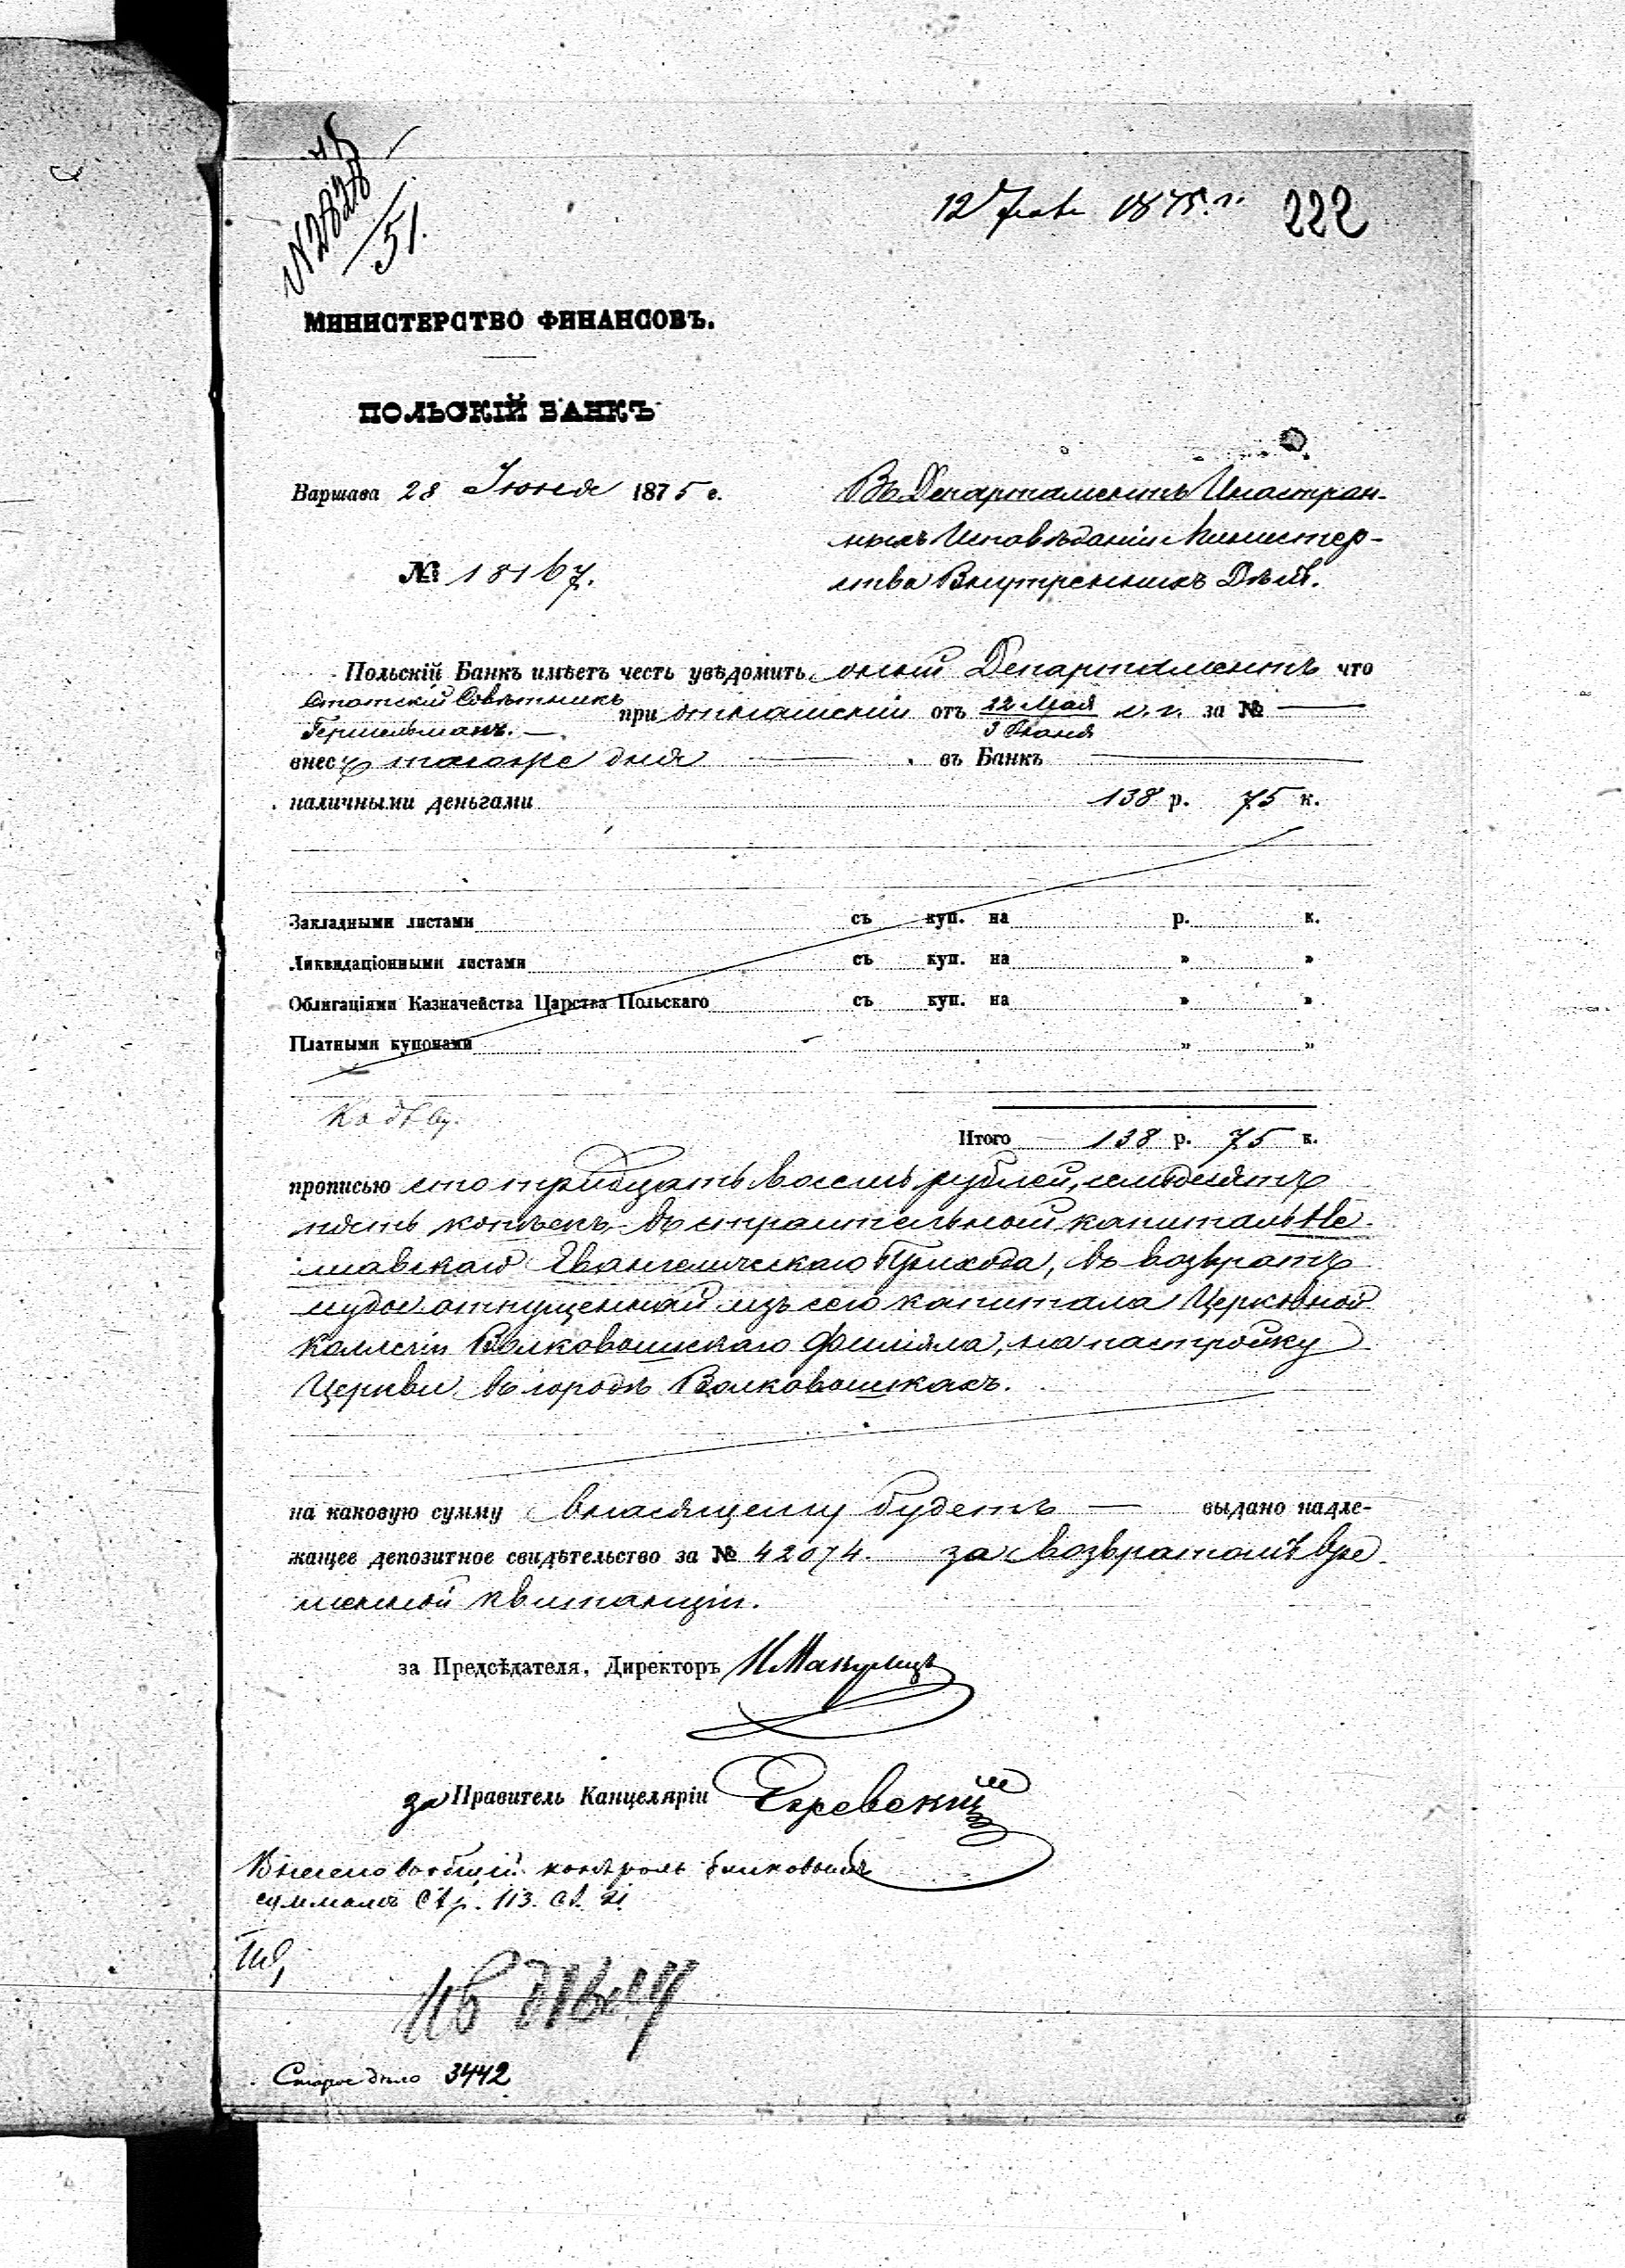 № 2828
51.
12 1875. г. 222
МИНИСТЕРСТВО ФИНАНСОВЪ.
ПОЛЬСКІЙ БАНКЪ
Варшава 28 Іюня 1875 г.
№ 18167.
Въ Департаментъ Иностран-
ныхъ Исповѣданій Министер-
ства Внутреннихъ Дѣлъ.
Польскій Банкъ имѣетъ честь увѣдомить оный Департаментъ что
Статскій Совѣтникъ
Гершельманъ. — при отношеніи отъ 22 Мая / 3 Іюня с. г. за № —
внесъ тогоже дня — въ Банкъ —
наличными деньгами 138 р. 75 к.
Закладными листами съ куп. на р. к.
Ликвидаціонными листами съ куп. на » »
Облигаціями Казначейства Царства Польскаго съ куп. на » »
Платными купонами » »
Къ дѣлу.
Итого 138 р. 75 к.
прописью сто тридцать восемь рублей, семьдесятъ
пять копѣекъ въ строительный капиталъ
Евангелическаго Прихода, въ возвратъ
ссуды отпущенной изъ сего капитала Церковной
Коллегіи Волковышскаго Филіяла, на постройку
Церкви въ городѣ Волковышкахъ.
на каковую сумму вносящему будетъ — выдано надле-
жащее депозитное свидѣтельство за № 42074. за возвратомъ вре-
менной квитанціи.
за Предсѣдателя, Директоръ
за Правитель Канцеляріи
Внесено въ общій контроль банковымъ
суммамъ Стр. 113. Ст. 21
Къ дѣлу
Старое дѣло 3442